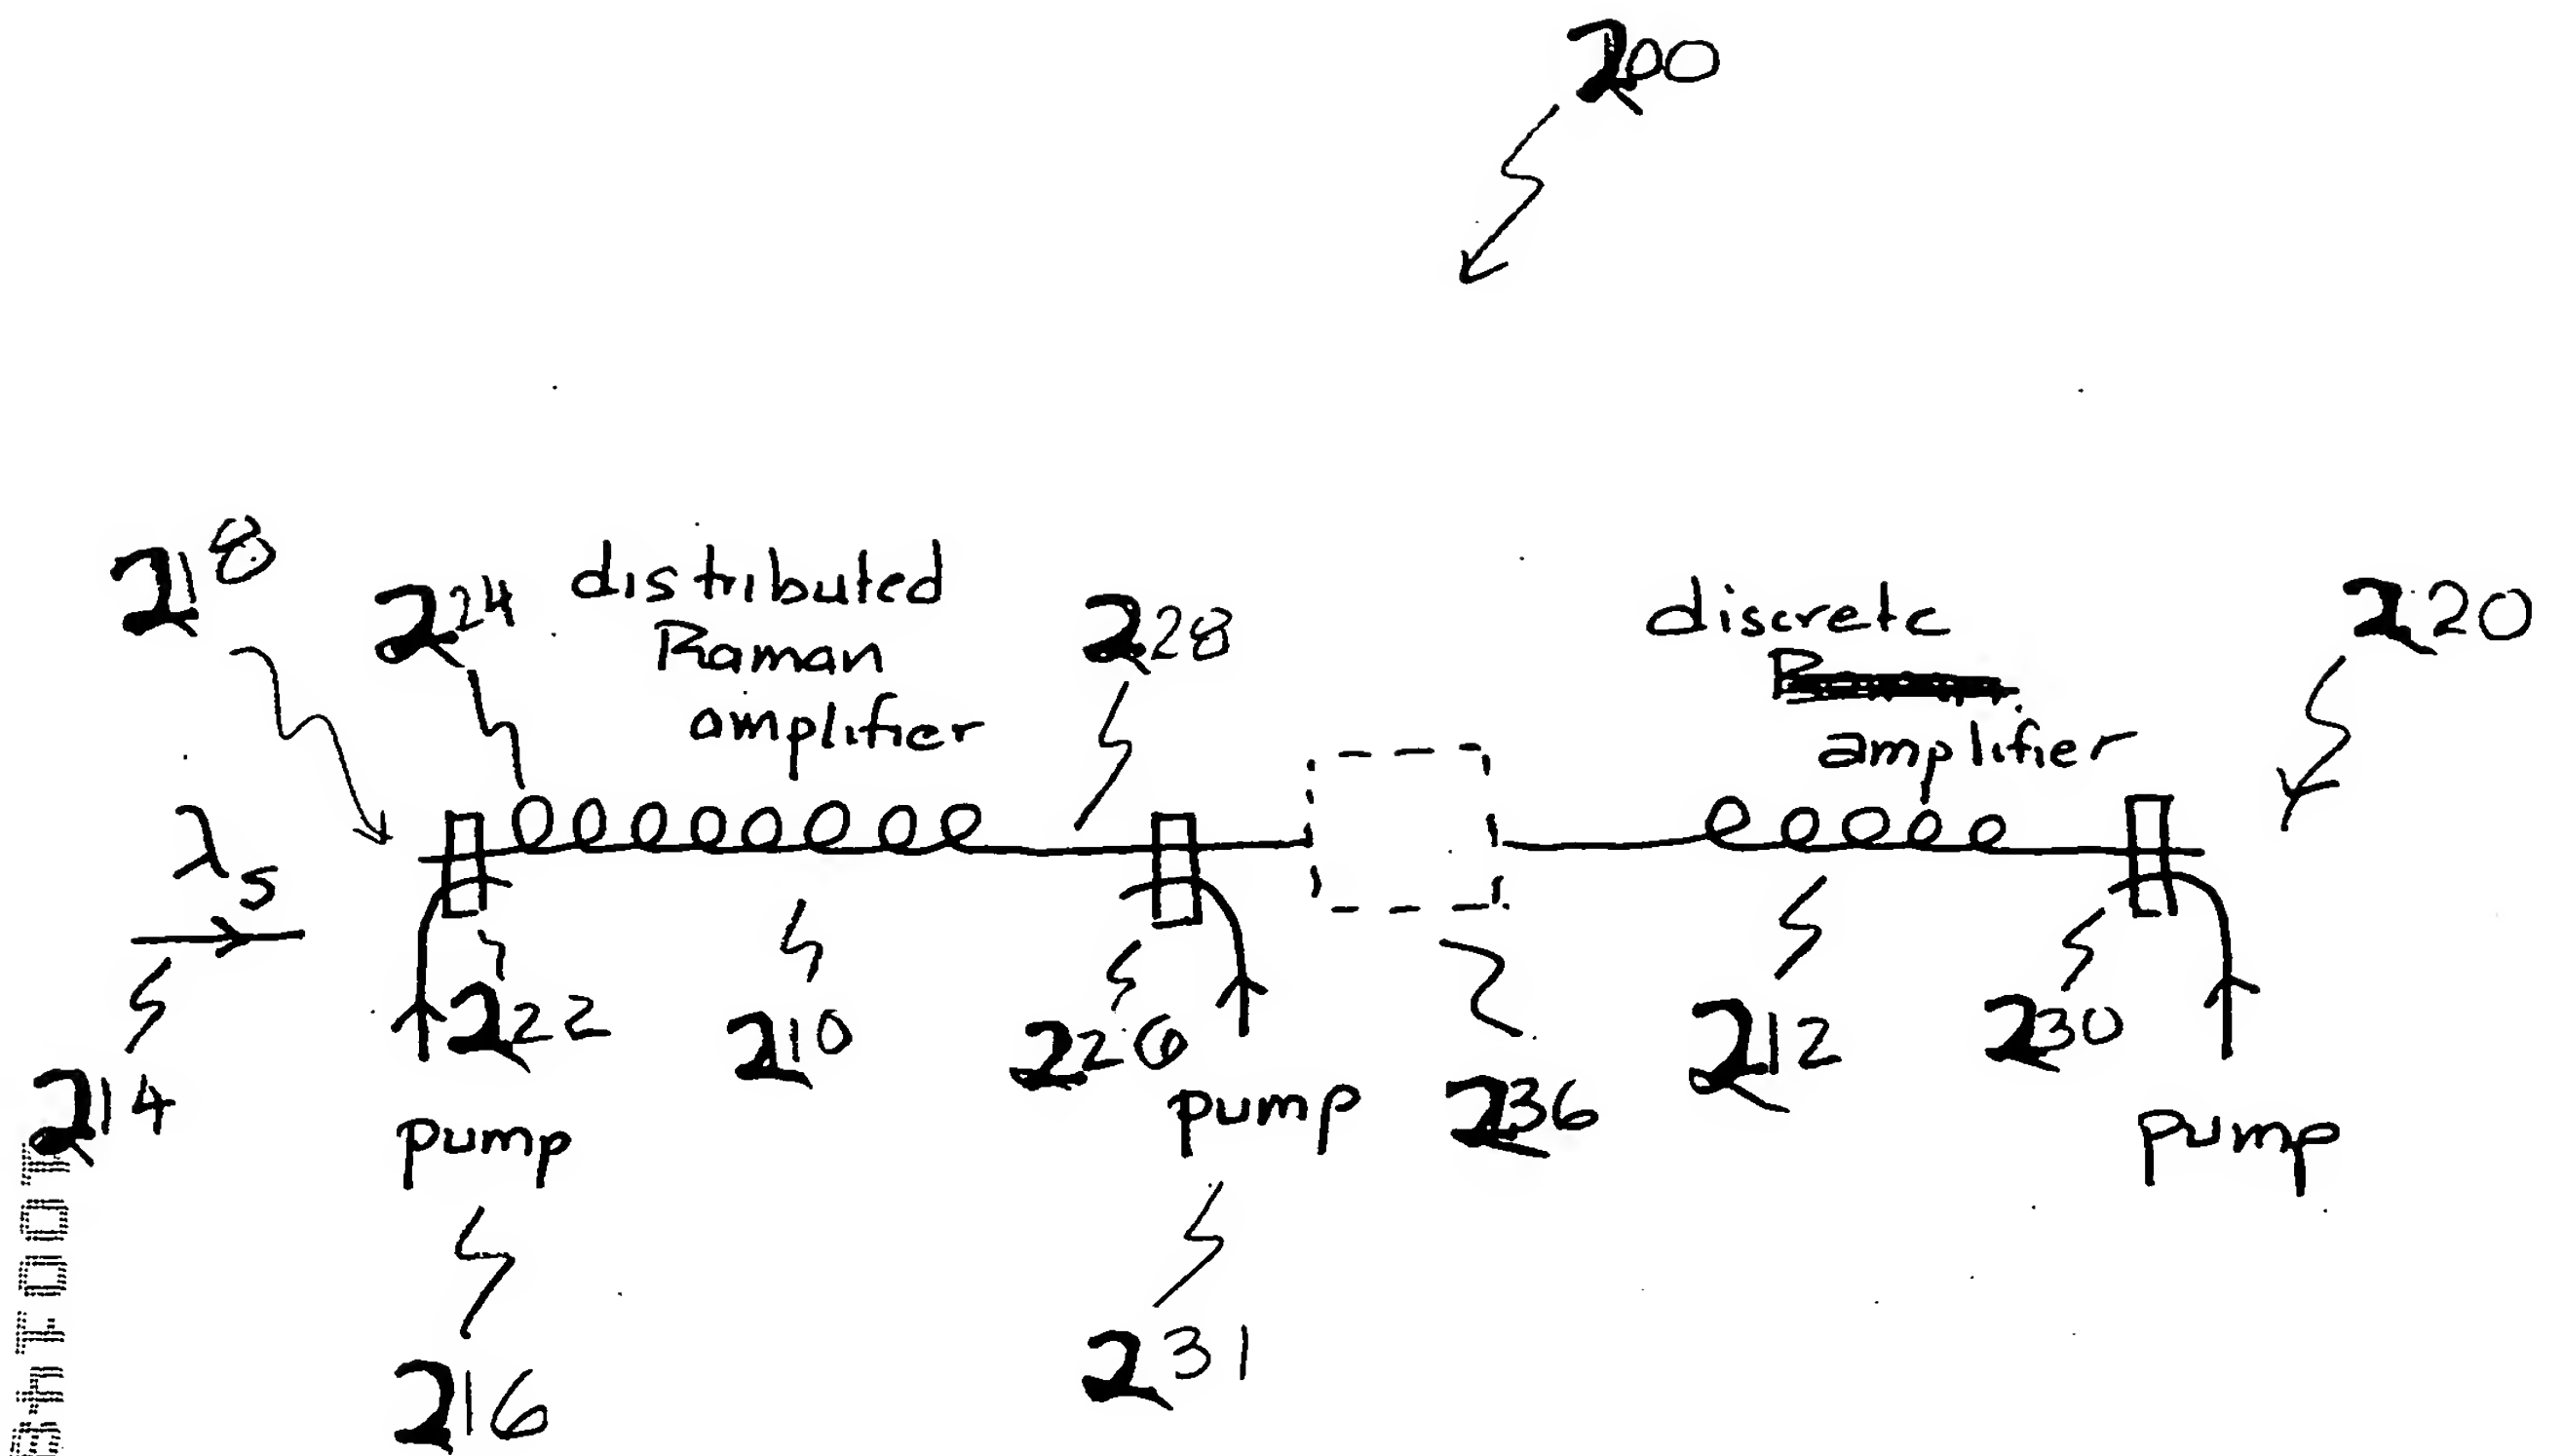 200
218
224
distributed
Raman
amplifier
228
discrete
amplifier
220
λs
222
210
226
236
212
230
214
pump
pump
pump
216
231